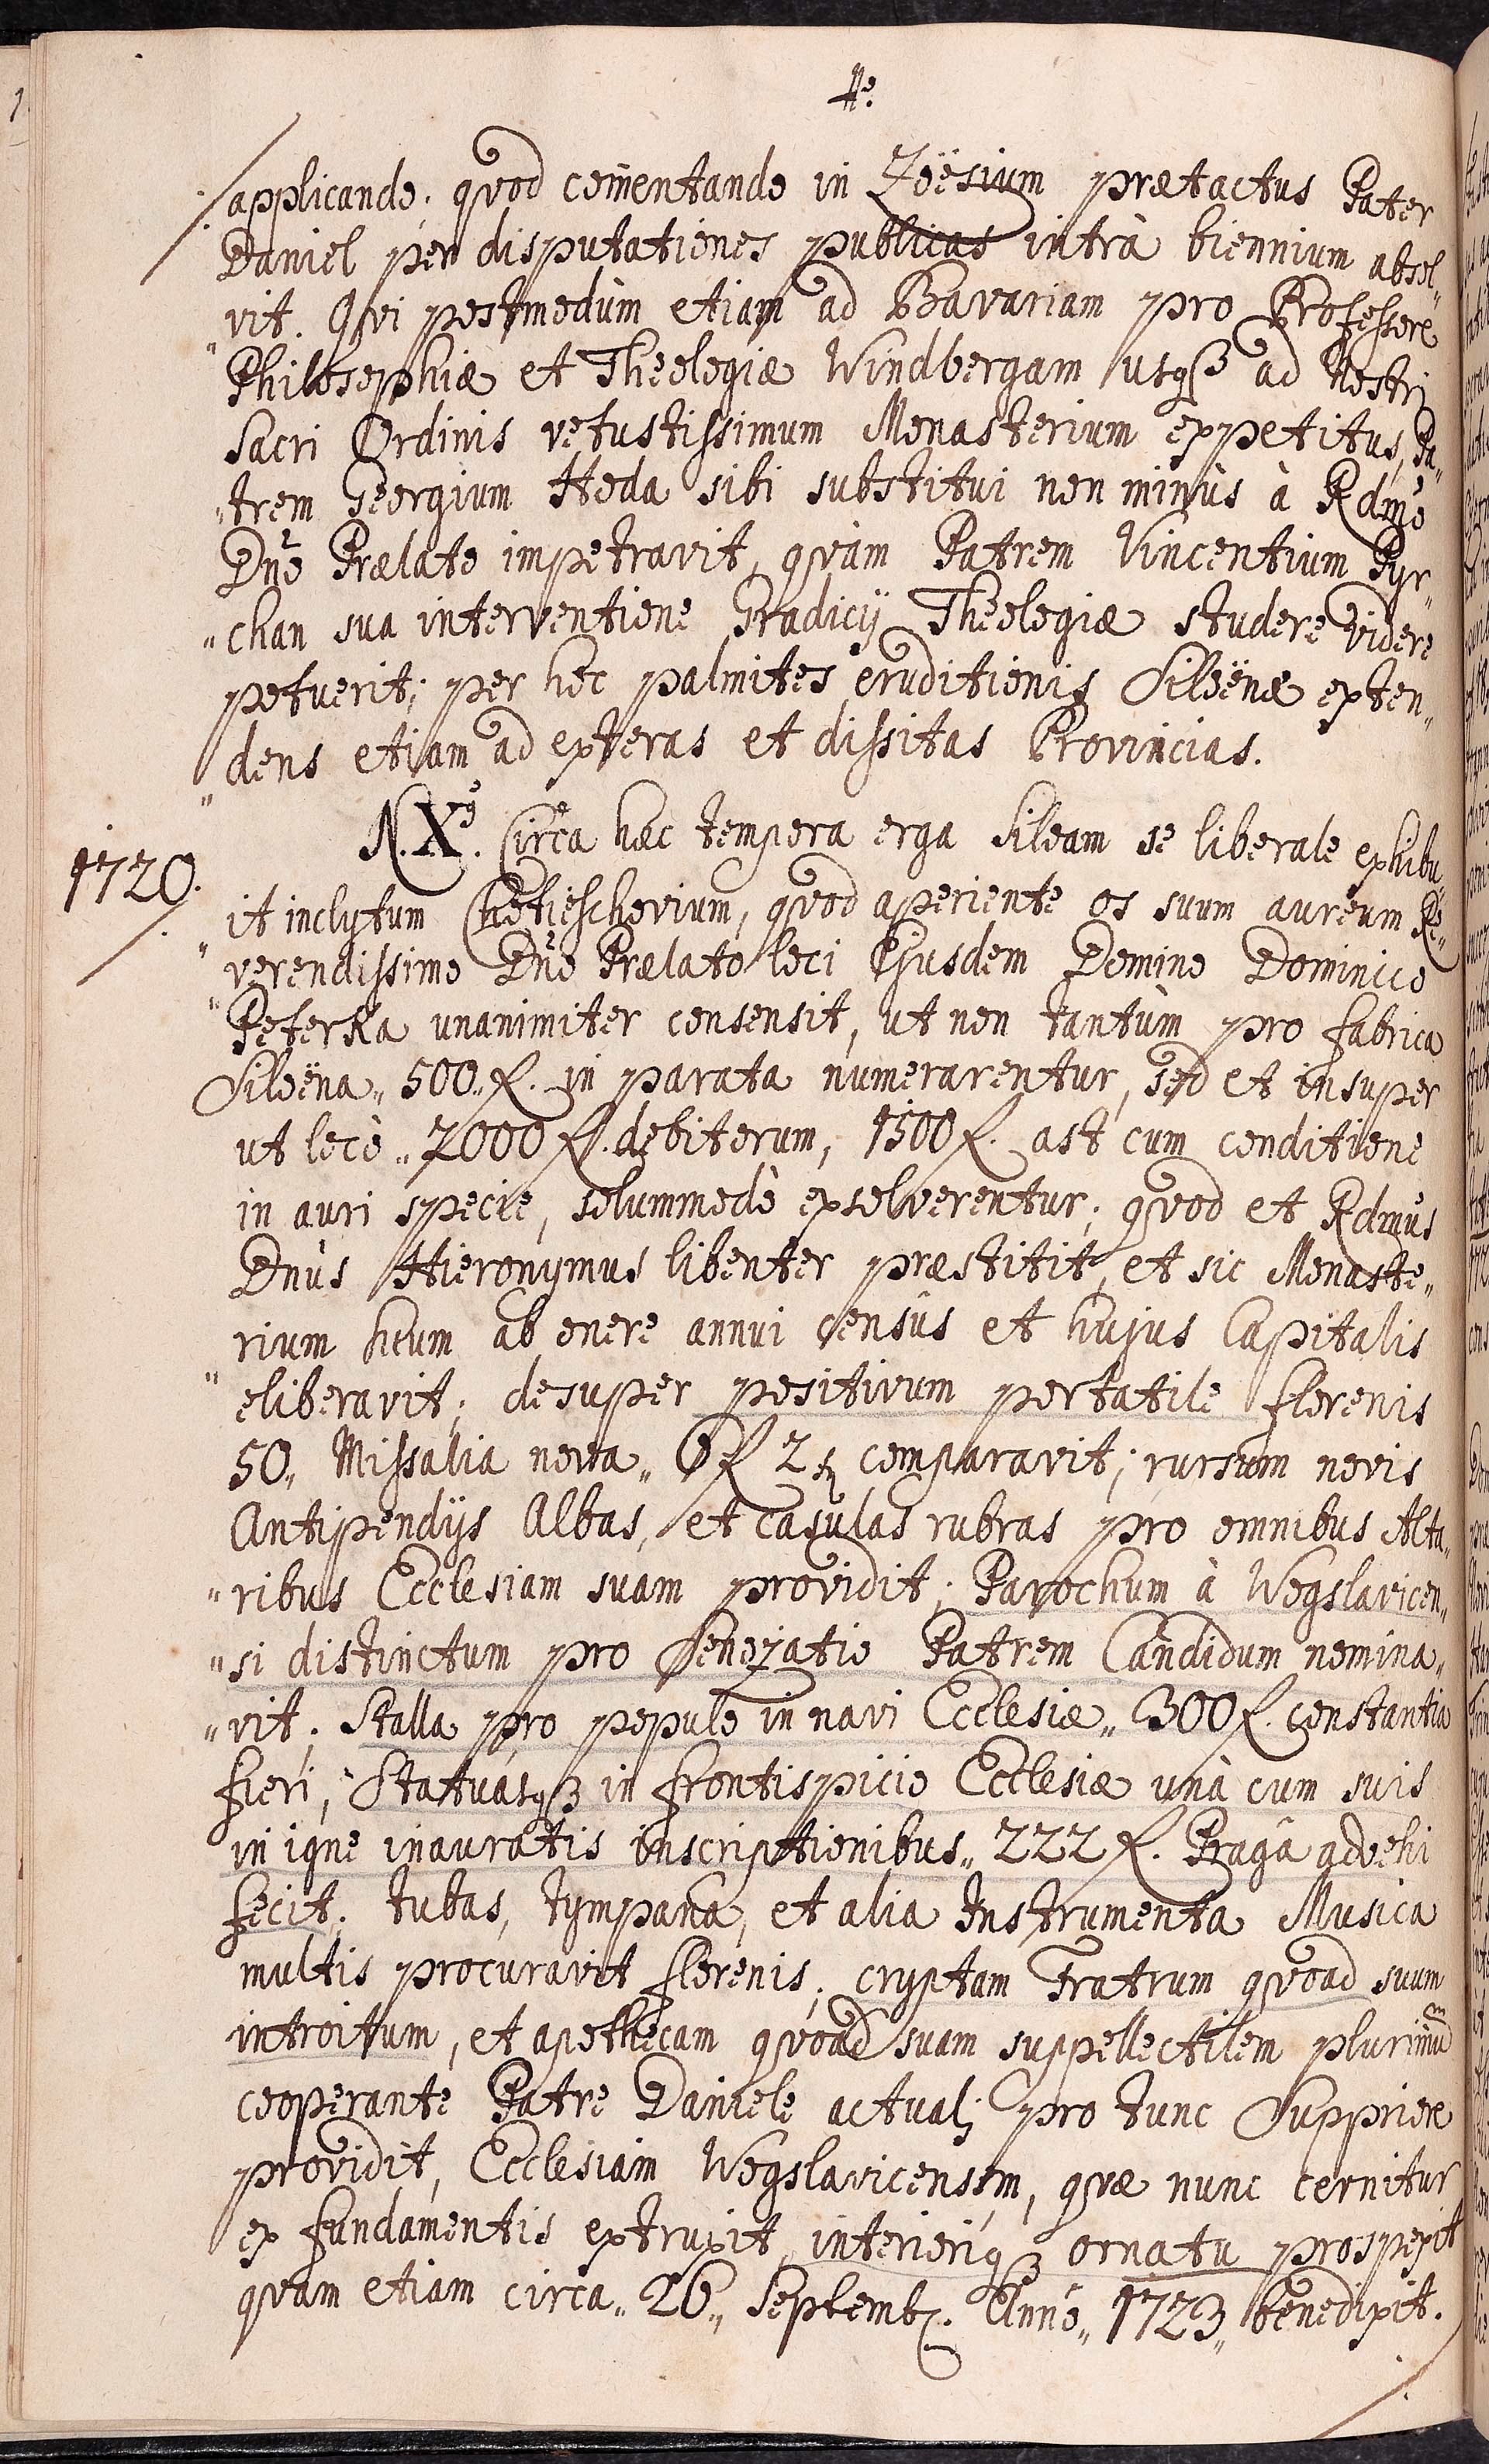 applicando; qvod com̃entando in Zöësium prætactus Pater
Daniel per disputationes publicas intrà biennium absol„
„vit. Qvi postmodùm etiam ad Bavariam pro Professore
Philosophiæ et Theologiæ Windbergam usqȝ ad nostri
Sacri Ordinis vetustissimum Monasterium expetitus, Pa„
„trem Georgium Hoda sibi substitui non minùs à Rdmo
Dño Prælato impetravit, qvàm Patrem Vincentium Pyr„
„chan sua interventione Gradicij Theologiæ studere videre
potuerit; per hoc palmites eruditionis Siloënæ exten„
„dens etiam ad exteras et dissitas Provincias.
1720.
N. X9. Circa hæc tempora erga Siloam se liberale exhibu„
„it inclytum Chotieschovium, qvod aperiente os suum aureum Re„
„verendissimo Dño Prælato loci Ejusdem Domino Dominico
Peterka unanimiter consensit, ut non tantùm pro fabrica
Siloëna„ 500„ f. in parata numerarentur, sed et insuper
ut locò„ 7000 f. debitorum, 1500 f. ast cum conditione
in auri specie, solummodò exsolverentur; qvod et Rdmus
Dnus Hieronymus libenter præstitit, et sic Monaste„
rium suum ab onere annui censûs et hujus Capitalis
„eliberavit; desuper positivum portatile florenis
50„ Missalia nova„ comparavit; rursum novis
Antipendijs Albas, et casulas rubras pro omnibus Alta„
„ribus Ecclesiam suam providit; Parochum à Wogslavicen„
„si distinctum pro Senozatio Patrem Candidum nomina„
„vit. Stalla pro populo in navi Ecclesiæ„ 300 f. constantia
fieri, Statuasqȝ in frontispicio Ecclesiæ unà cum suis
in igne inauratis inscriptionibus„ 222 f. Pragâ advehi
fecit; tubas, tympana, et alia Instrumenta Musica
multis procuravit florenis; cryptam Fratrum qvoad suum
introitum, et apothecam qvoad suam suppellectilem plurimũ
cooperante Patre Daniele actuali pro tunc Suppriore
providit, Ecclesiam Wogslavicensem, qvæ nunc cernitur
ex fundamentis extruxit, interioriqȝ ornatu prospexit
qvam etiam circa„ 26„ Septemb. Anno„ 1723„ benedixit.